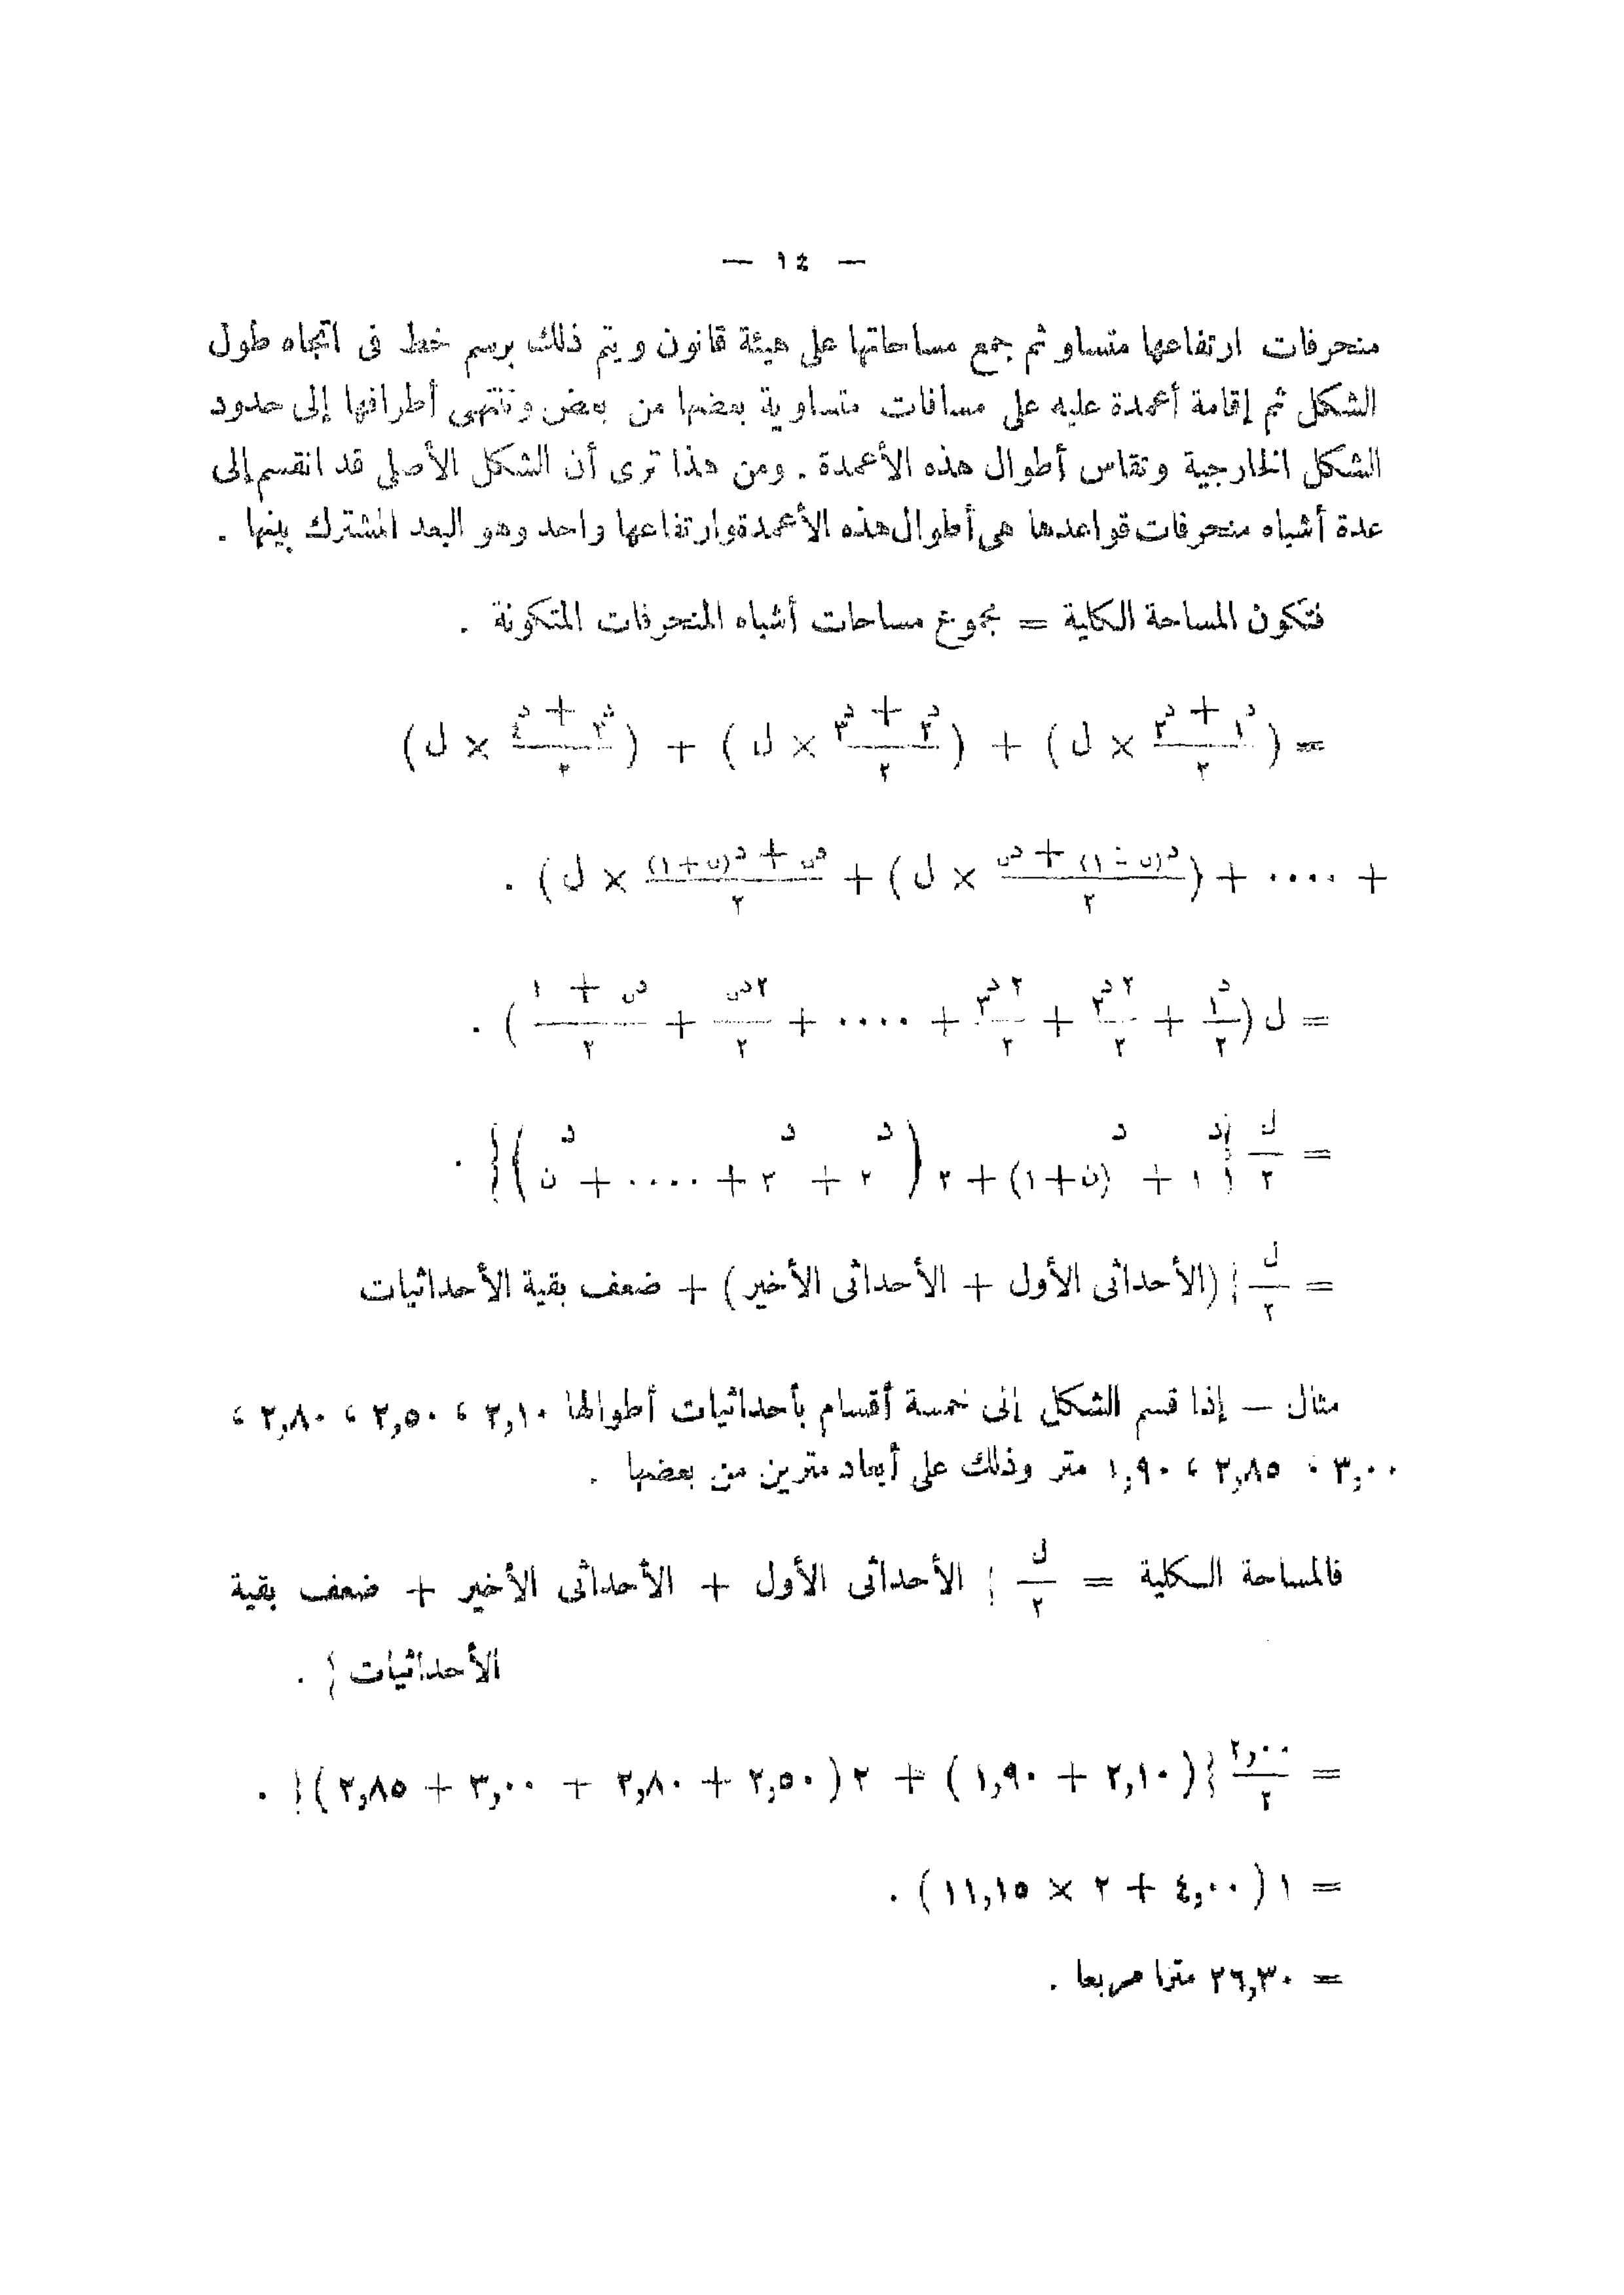 — ١٤ —
منحرفات ارتفاعها متساو ثم جمع مساحاتها على هيئة قانون ويتم ذلك برسم خط فى اتجاه طول
الشكل ثم إقامة أعمدة عليه على مسافات متساوية بعضها من بعض وتنتهى أطرافها إلى حدود
الشكل الخارجية وتقاس أطوال هذه الأعمدة . ومن هذا ترى أن الشكل الأصلى قد انقسم إلى
عدة أشباه منحرفات قواعدها هى أطوال هذه الأعمدة وارتفاعها واحد وهو البعد المشترك بينها .
فتكون المساحة الكلية = مجموع مساحات أشباه المنحرفات المتكونة .
= (د١ + د٢ / ٢ × ل) + (د٢ + د٣ / ٢ × ل) + (د٣ + د٤ / ٢ × ل)
+ .... + (د(ن - ١) + دن / ٢ × ل) + (دن + د(ن+١) / ٢ × ل) .
= ل (د١ / ٢ + ٢ د٢ / ٢ + ٢ د٣ / ٢ + .... + ٢ دن / ٢ + دن + ١ / ٢) .
= ل / ٢ {د١ + د(ن+١) + ٢ (د٢ + د٣ + .... + دن)} .
= ل / ٢ { (الأحداثى الأول + الأحداثى الأخير) + ضعف بقية الأحداثيات
مثال — إذا قسم الشكل إلى خمسة أقسام بأحداثيات أطوالها ٢,١٠ ، ٢,٥٠ ، ٢,٨٠ ،
٣,٠٠ ، ٢,٨٥ ، ١,٩٠ متر وذلك على أبعاد مترين من بعضها .
فالمساحة الكلية = ل / ٢ { الأحداثى الأول + الأحداثى الأخير + ضعف بقية
الأحداثيات } .
= ٢,٠٠ / ٢ {(٢,١٠ + ١,٩٠) + ٢ (٢,٥٠ + ٢,٨٠ + ٣,٠٠ + ٢,٨٥)} .
= ١ (٤,٠٠ + ٢ × ١١,١٥) .
= ٢٦,٣٠ مترا مربعا .